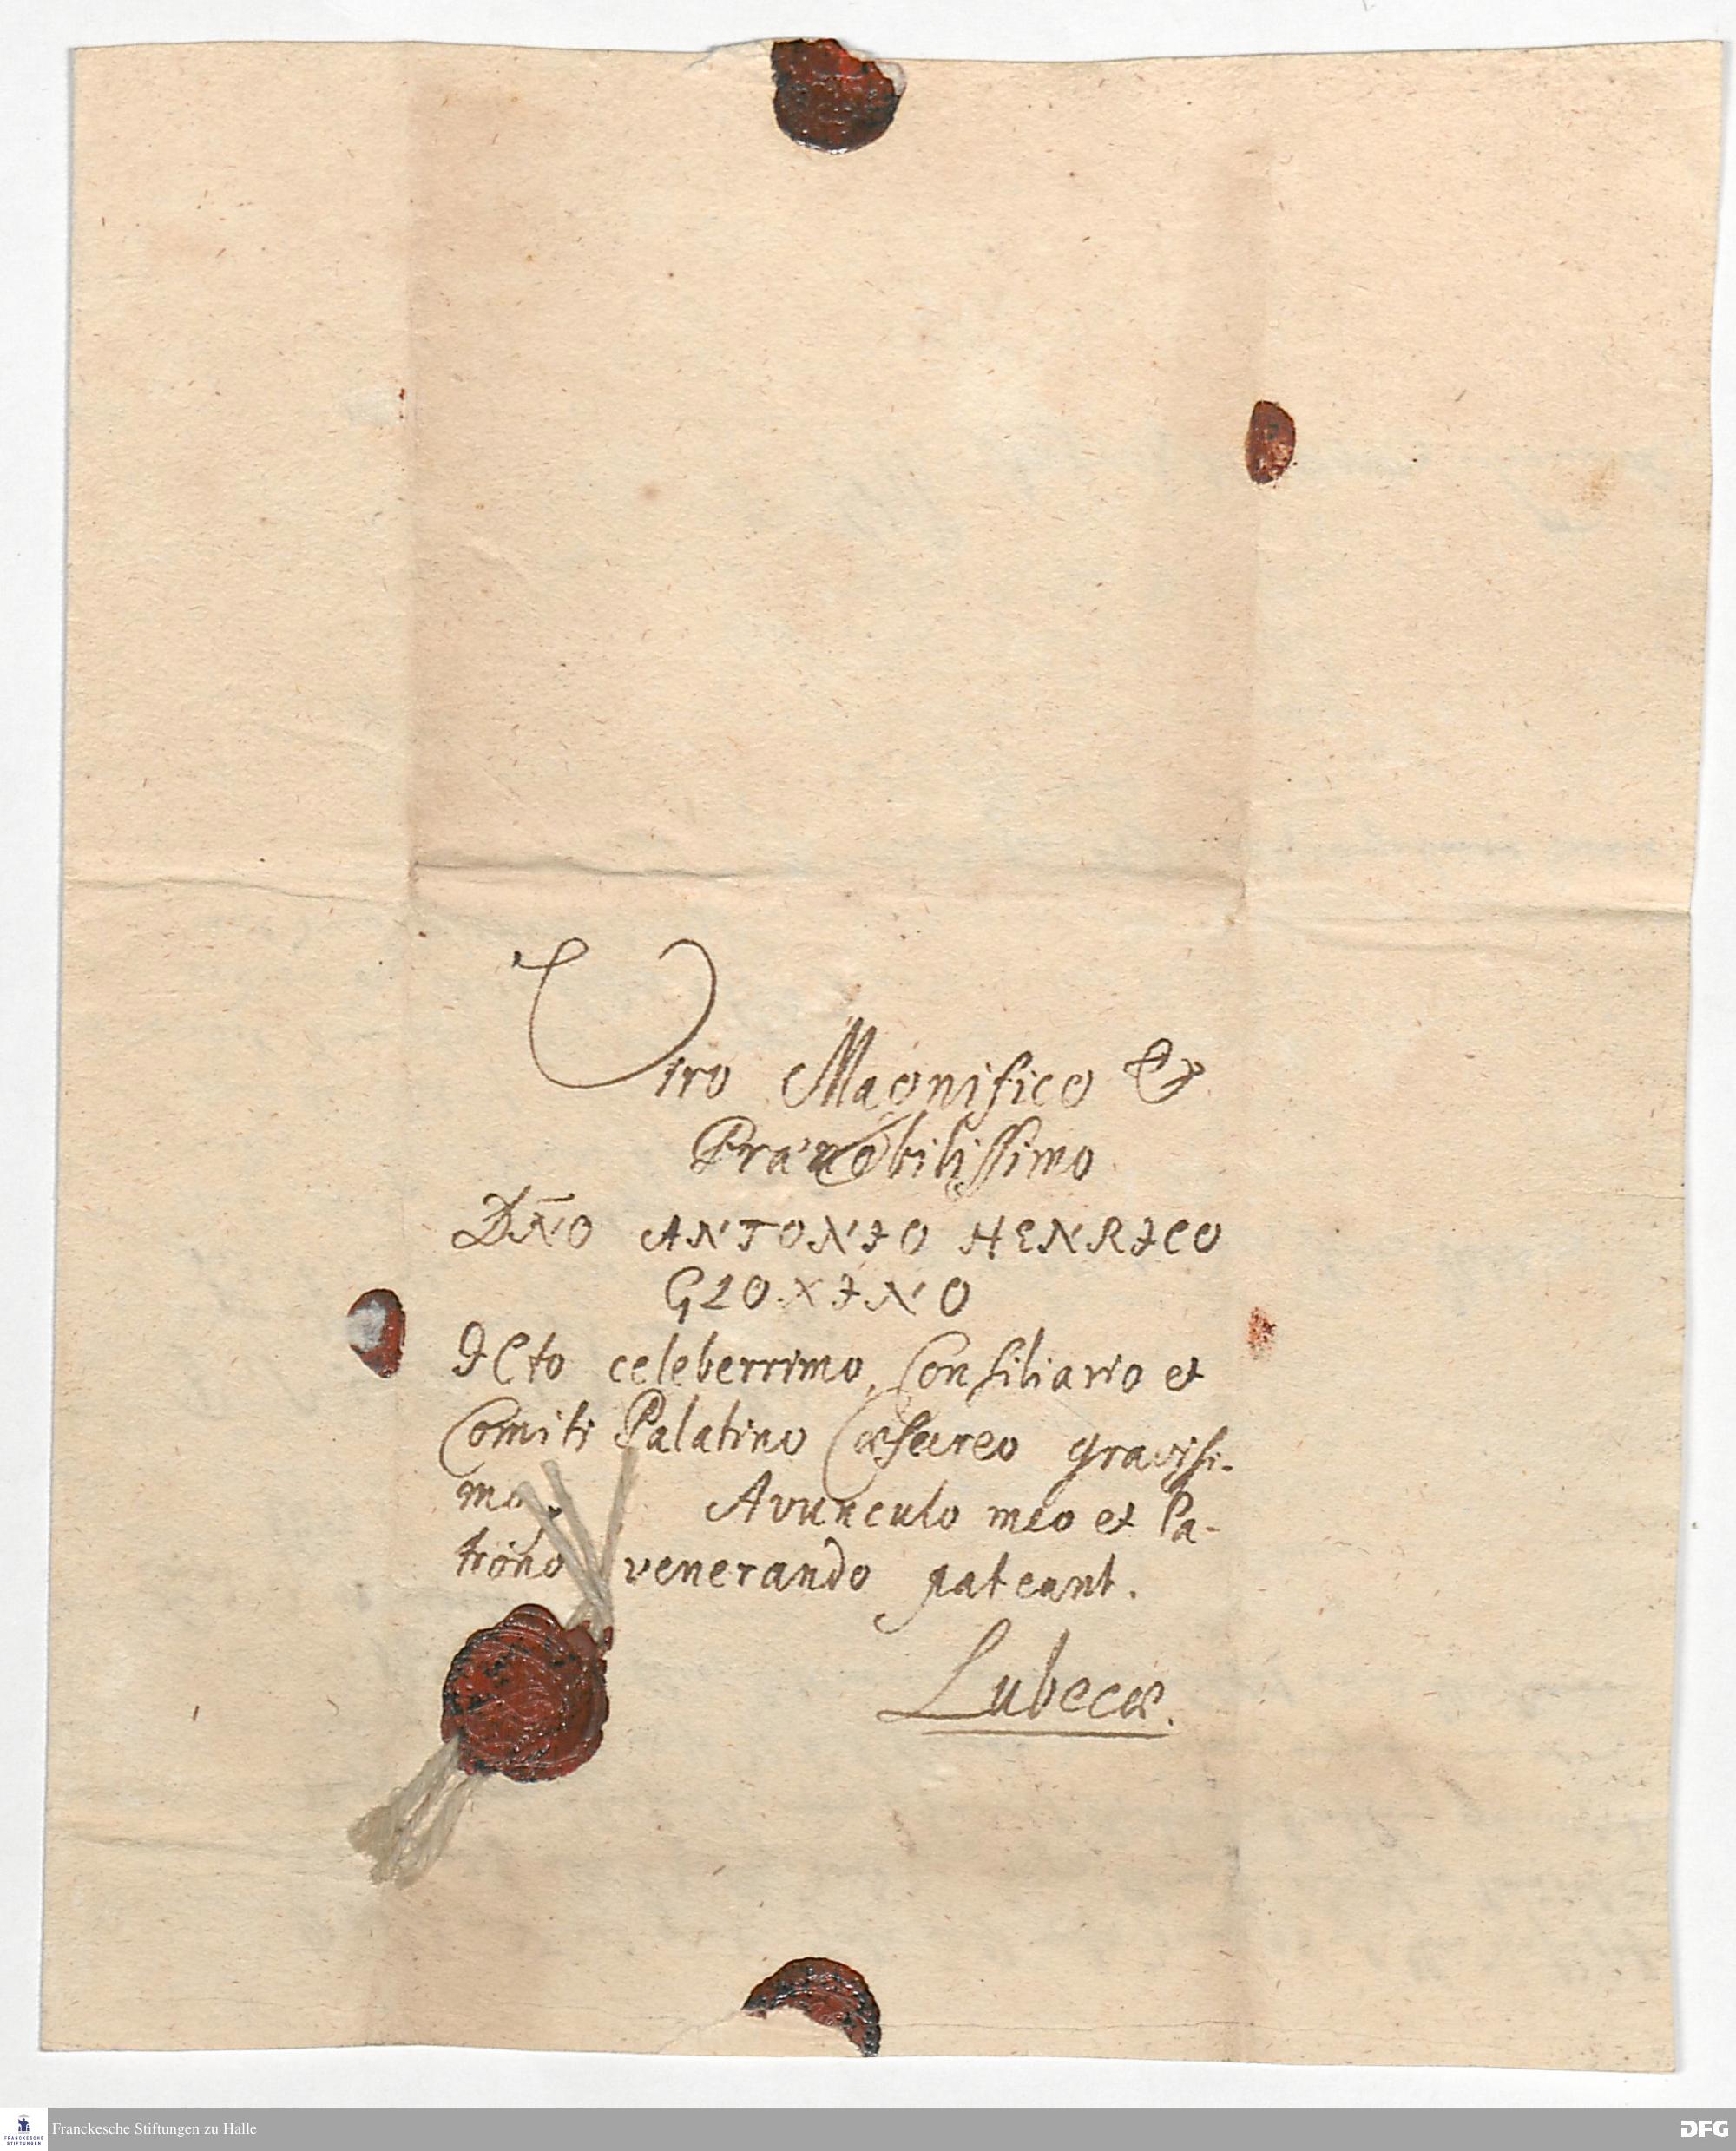 Viro Magnifico &
Prænobilissimo
Dn̄o ANTONIO HENRICO
GLOXINO
ICto celeberrimo, Consiliario et
Comiti Palatino Cæsareo gravissi-
mo, Avunculo meo et Pa-
trono venerando pateant.
Lubecæ.
FRANCKESCHE
STIFTUNGEN
Franckesche Stiftungen zu Halle
DFG